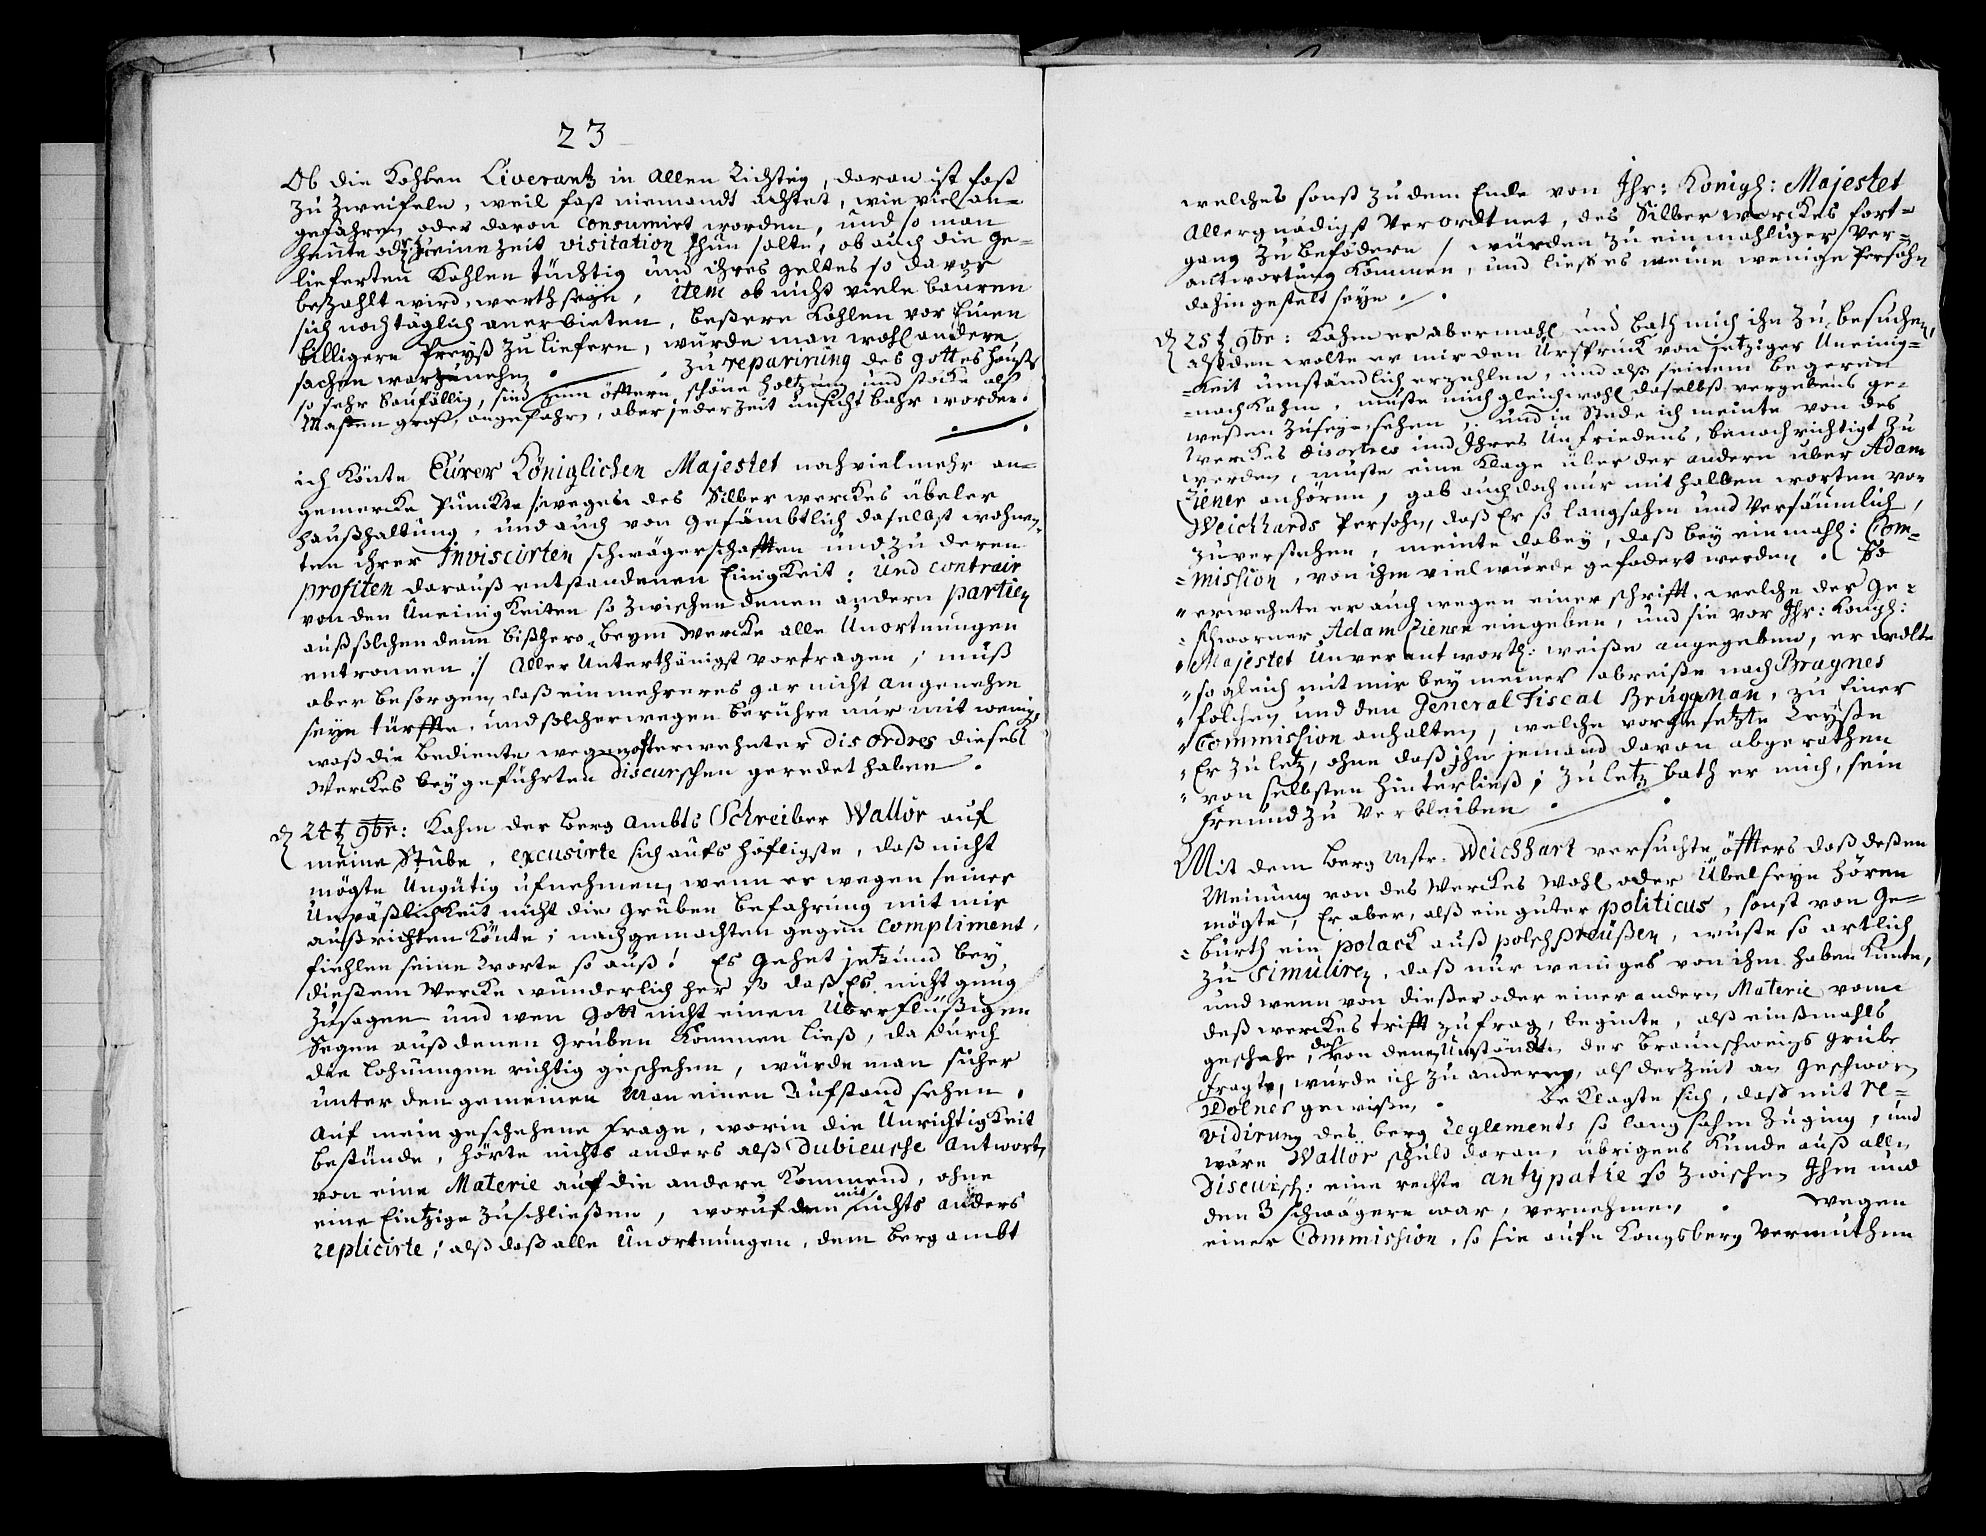 23
Ob die Kohlen Liverantz in allen Richtig, daran ist fast
zu zweifeln, weil fast niemandt achtet, wie viel an-
gefahren oder davon Consumirt worden, und so man
heute oder zu eine Zeit visitation thun solte, ob auch die ge-
lieferten Kohlen tüchtig und ihres geltes so davor
bezahlt wird, werth seyn, item ob nicht viele bauren
sich noch täglich anerbieten, beßere Kohlen vor Einen
billigern Preyß zu liefern, würde man wohl andere
sachen warzunehm. zu reparirung des Gottes Hauses
so sehr Baufällig, sind zum öfftern, schöne Holtzung und stöcke als
Masten groß, angefahren, aber jederzeit unsichtbahr worden.
ich Könte Eurer Königlichen Majestet noch viel mehr an-
gemerckte Punckte wegen des Silberwerckes übeler
haußhaltung, und auch von gesämbtlich daselbst wohnen-
ten ihrer Inviscirten schwägerschafften und zu deren
profiten darauß entstandenen Einigkeit: und contrair
von den Uneinigkeiten so zwischen denen andern partien
auß solchen denn bißhero beym Wercke alle Unortnungen
entronnen :/ Aller Unterthänigst vortragen; muß
aber besorgen, daß ein mehreres gar nicht angenehm
seyn türffte, und solcherwegen berühre nur mit wenig,
waß die Bediente wegen offterwehnter disordres dieses
Werckes bey geführten discurschen geredet haben.
d 24t 9br: Kahm der Berg Ambts Schreiber Wallör auf
meine Stube, excusirte sich aufs höfligste, daß nicht
mögte Ungütig ufnehmen, wenn er wegen seiner
Unpäßlichkeit nicht die Gruben befahrung mit mir
außrichten Könte; nach gemachten gegen Compliment,
fiehlen seine Worte so auß! Es gehet jetzund bey
dießem Wercke wunderlich her so daß Es nicht gnug
zu sagen und wen Gott nicht einen Überflüßigen
Segen auß denen Gruben Kommen ließ, da durch
die Lohnungen richtig geschehen, würde man sicher
unter den gemeinen Man einen Aufstand sehen.
Auf mein geschehene frage, worin die Unrichtigkeit
bestünde, hörte nichts anders alß Dubieusche Antwort,
von eine Materie auf die andere Kommend, ohne
eine Eintzige zu schließen, woruf den mit nichts anders
replicirte, alß daß alle Unortnungen, dem Berg ambt
welches sonst zu dem Ende von Ihr: Königl: Majestet
Allergnädigst Verordtnet, des Silberwerckes fort-
gang zu befödern / würden zu einmahliger Ver-
antwortung Kommen, und ließ es meine wenige Persohn
dahin gestelt seyn.
d 25t 9br: Kahm er abermahl und bath mich ihn zu besuchen,
alßden wolte er mir den Ursprunk von jetziger Uneinig-
-keit umständlich erzehlen, und alß seinem begeren
-nach Kahm, muste mich gleichwohl daselbst vergebens ge-
weßen zuseyn sehen, und in Stade ich meinte von des
Werckes disordres und Ihres Unfriedens, benachrichtigt zu
werden, muste eine Klage über der andern über Adam
Ziener anhören, gab auch doch nur mit halben worten von
Weichhards Persohn, daß Er so langsahm und Versäumlich,
zuverstehen, meinte dabey, daß bey einmahl: Com-
-mission, von ihm viel würde gefodert werden. So
" erwehnte er auch wegen einer schrifft, welche der Ge-
schworner Adam Ziener eingeben, und sie vor Ihr: Königl:
" Majestet Unverantworthl: weiße angegeben, er wolte
" so gleich mit mir bey meiner abreiße nach Bragnes
" folchen und den General Fiscal Brüggman, zu Einer
" Commission anhalten, welche vorgesetzte Reyße
" Er zuletz, ohne daß Ihn jemand davon abgerathen
" von selbsten hinterließ; zuletz bath er mich, sein
freund zu Verbleiben.
Mit dem Berg Mstr. Weichhart versuchte öffters daß deßen
Meinung von des Werckes Wohl oder Übelseyn hören
mögte, Er aber, alß ein guter politicus, sonst von Ge-
- burth ein polack auß polsch Preüßen, wuste so artlich
zu simuliren, daß nur weniges von ihm haben Kunte,
und wenn von dießer oder einer andern Materie vom
deß werckes trifft zu frag, beginte, alß einßmahls
geschehe, daß von denen Umständen der Braunschweigs grube
fragte, würde ich zu anderen, als derzeit an Geschworn
Wolnes gewißen. Beklagte sich, daß mit re-
vidirung des berg Reglements so langsahm zuging, und
wäre Wallör schuld daran, übrigens Kunde auß allen
Discursch: eine rechte antypatie so zwischen Ihm und
den 3 schwägern war, vernehmen. Wegen
einer Commission, so sie aufn Kongsberg vermuthen